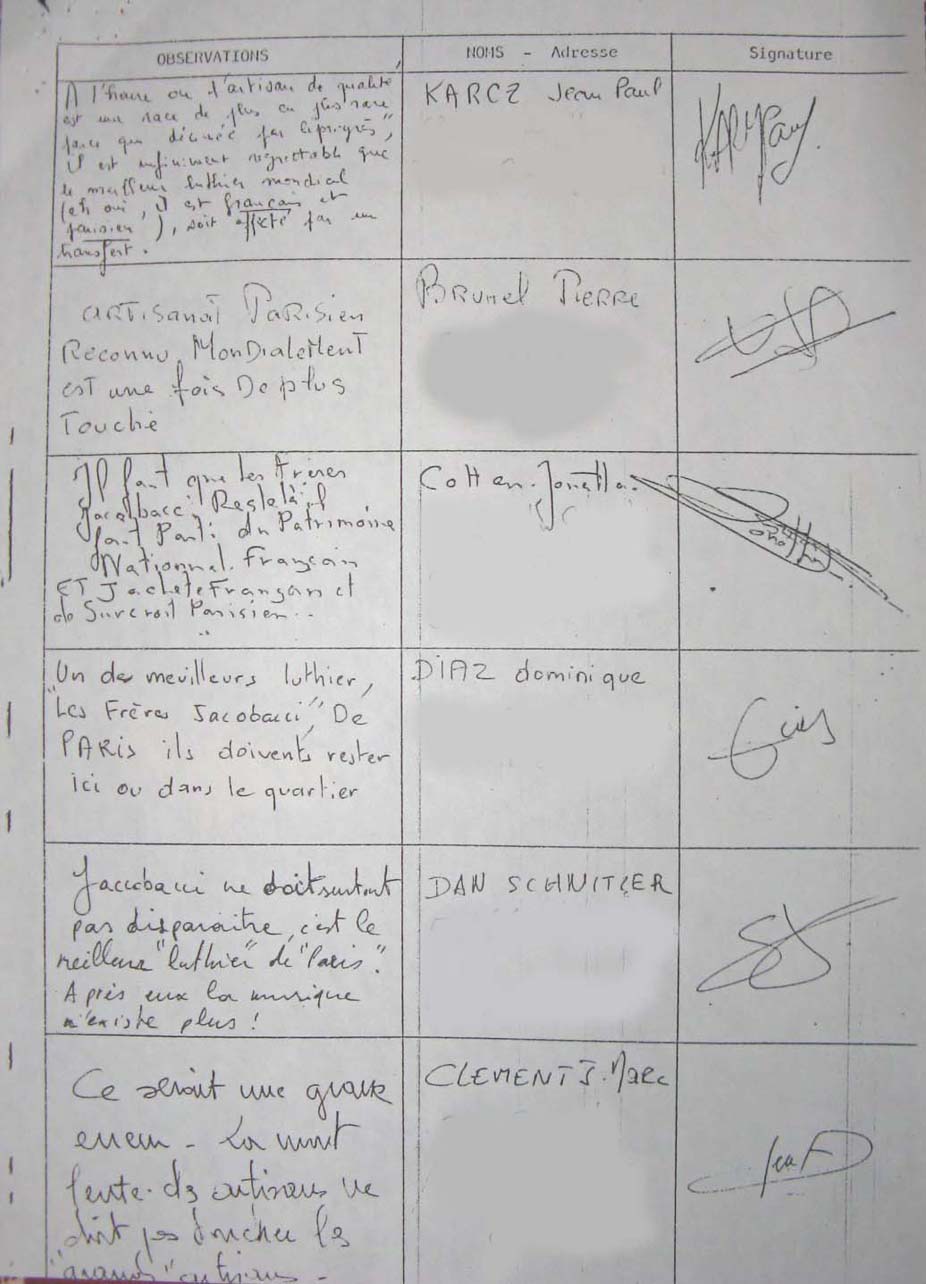 OBSERVATIONS
NOMS - Adresse
Signature
A l'heure ou l'artisan de qualité
est une race de plus en plus rare
parce que décimée par le "progrès",
il est infiniment regrettable que
le meilleur luthier mondial
(eh oui, il est français et
parisien), soit affecté par un
transfert.
KARCZ Jean Paul
ARTISANAT PARISIEN
RECONNU MONDIALEMENT
EST une fois De plus
Touché
BRUNEL PIERRE
Il faut que les Frères
Jacobacci
font Parti du Patrimoine
Nationnal. Français
ET J achete Français et
de Surcroit Parisien...
Cohen. Jonatha.
Un des meuilleurs luthier,
"Les Frères Jacobacci," De
PARIS ils doivents rester
ici ou dans le quartier
DIAZ dominique
Jaccobacci ne doit surtout
pas disparaitre, c'est le
meilleur "luthier" de "Paris".
Après eux la musique
n'existe plus!
DAN SCHNITZER
Ce serait une grave
erreur - La mort
lente des artisans ne
doit pas toucher les
"grands" artisans -
CLEMENT J. Marc